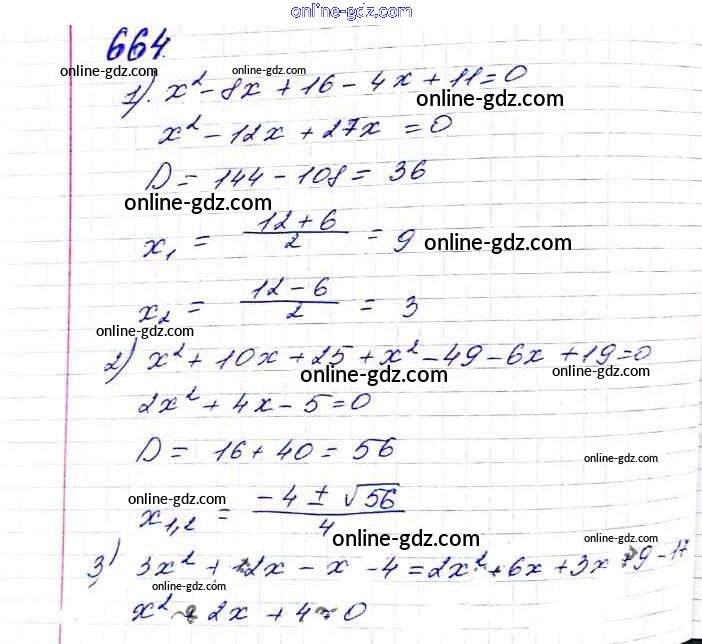 online-gdz.com
664.
online-gdz.com online-gdz.com
1). x² - 8x + 16 - 4x + 11 = 0
online-gdz.com
x² - 12x + 27x = 0
D = 144 - 108 = 36
online-gdz.com
x₁ = (12 + 6)/2 = 9 online-gdz.com
x₂ = (12 - 6)/2 = 3
online-gdz.com
2) x² + 10x + 25 + x² - 49 - 6x + 19 = 0
online-gdz.com online-gdz.com
2x² + 4x - 5 = 0
D = 16 + 40 = 56
online-gdz.com
online-gdz.com
x₁,₂ = (-4 ± √56)/4
online-gdz.com online-gdz.com
3) 3x² + 12x - x - 4 = 2x² + 6x + 3x + 9 - 17
online-gdz.com online-gdz.com
x² + 2x + 4 = 0